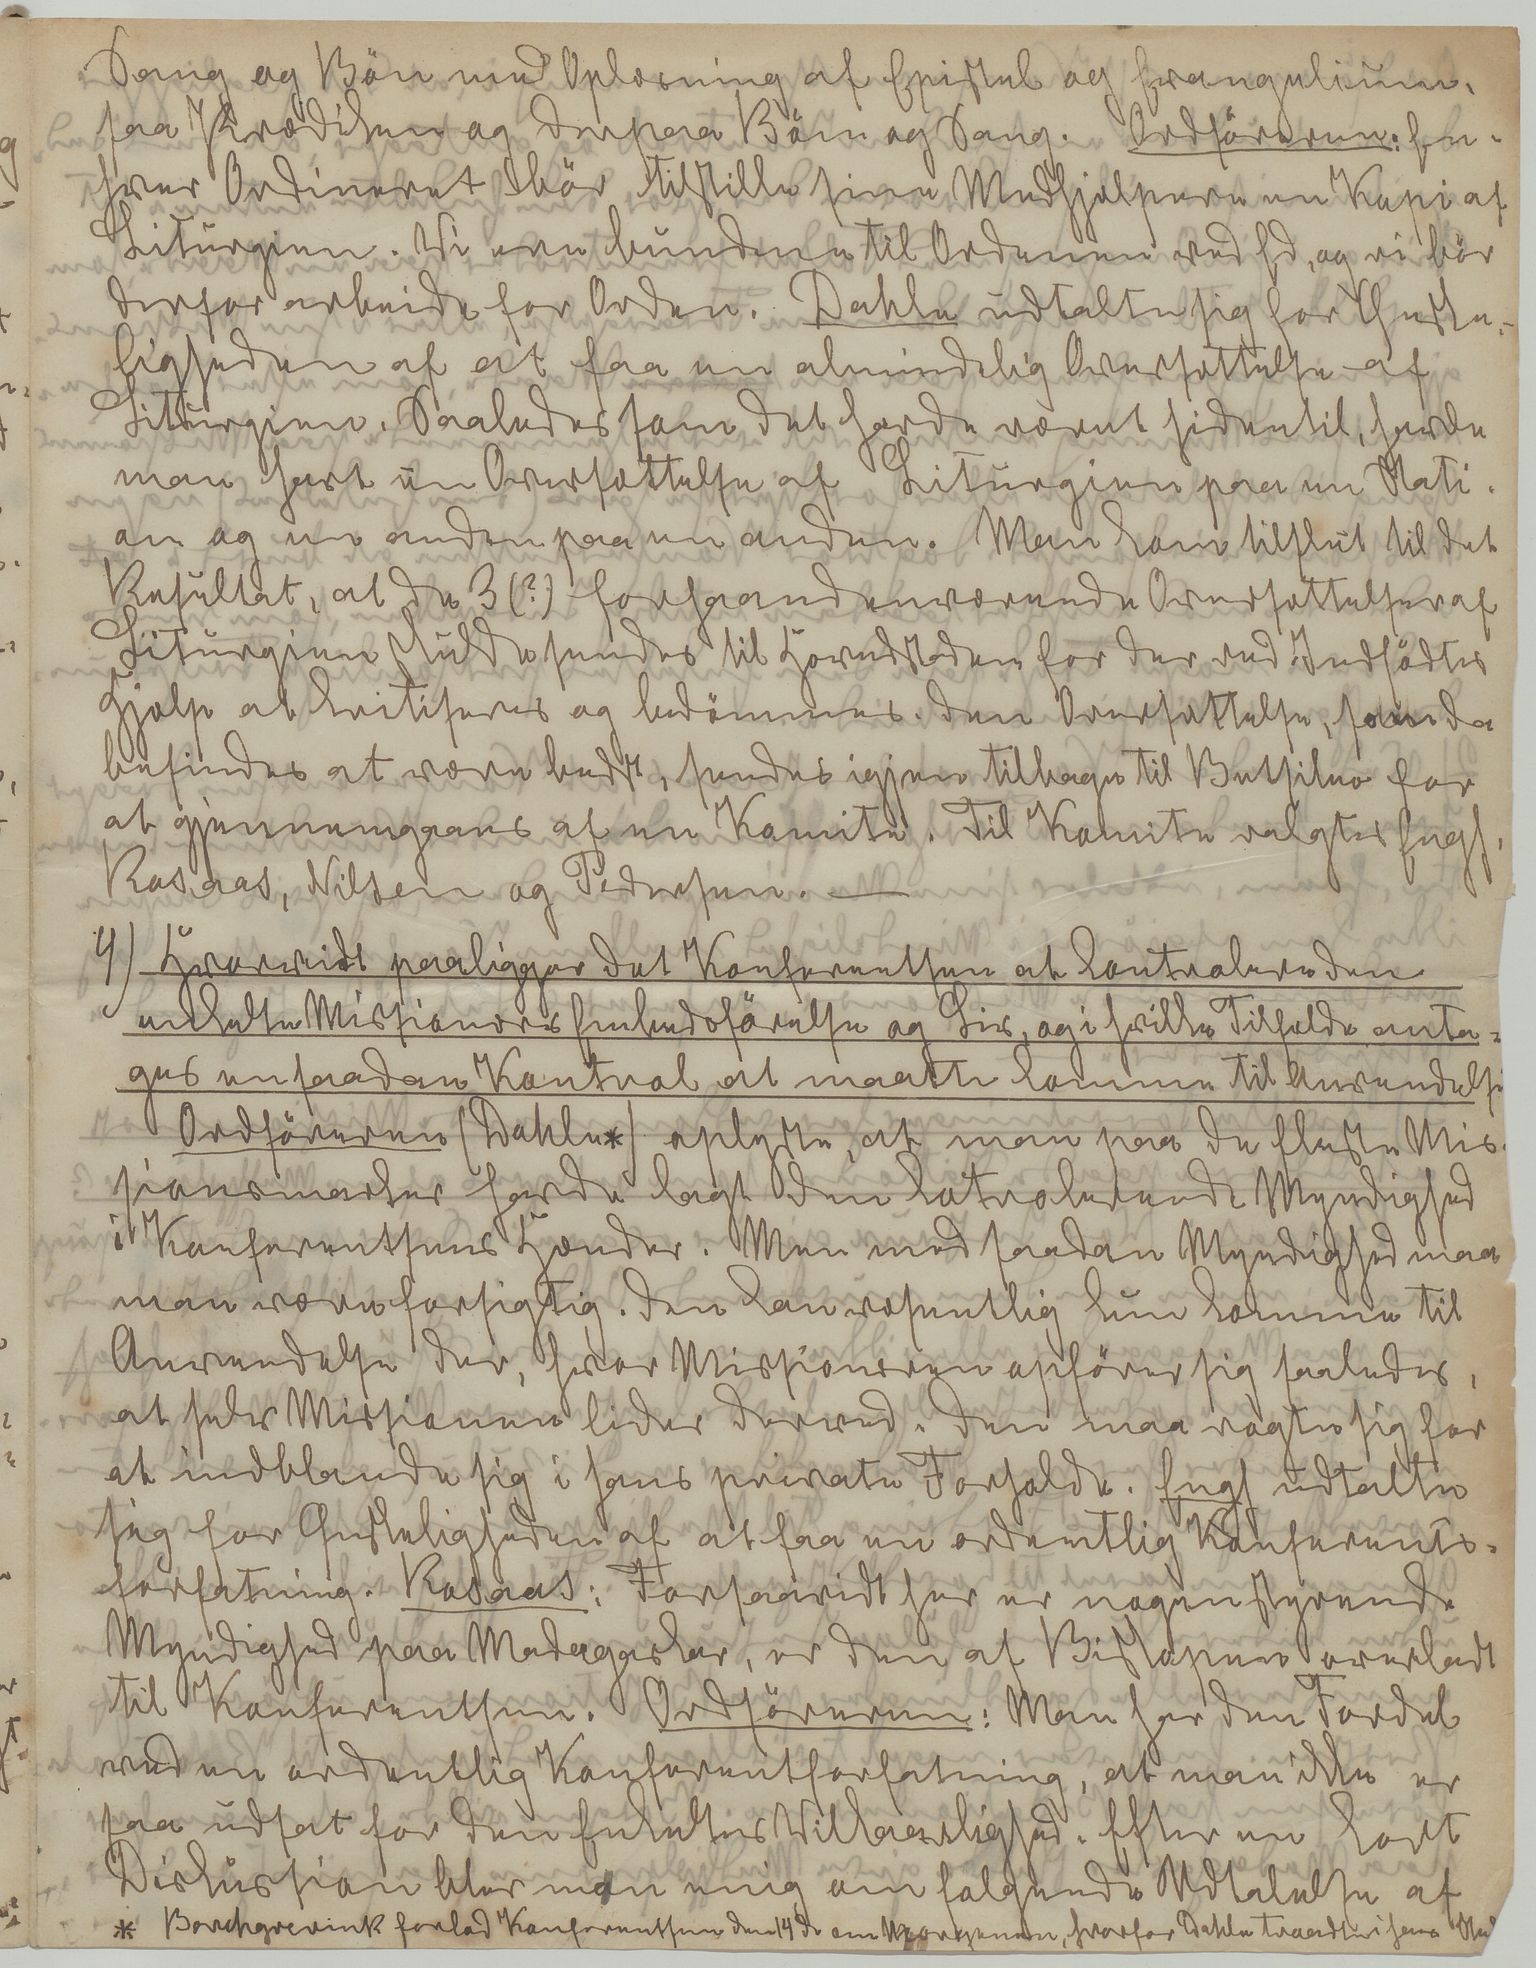 Sang og Bön med Oplæsning af Epistel og Evangelium,
saa Prædiken og derpaa Bön og Sang. Ordföreren: En-
hver Ordineret bör tilstille sine Medhjælpere en Kopi af
Liturgien. Vi ere bundene til Ordenen ved Ed, og vi bör
derfor arbeide for Orden. Dahle udtalte sig for Ønske-
ligheden af at faa en almindelig Oversættelse af
Liturgien. Saaledes som det havde været hidentil, havde
man havt en Oversættelse af Liturgien paa en Stati-
on og en anden paa en anden. Man kom tilslut til det
Resultat, at de 3 (?) forhaandenværende Oversættelser af
Liturgien skulde sendes til Hovedstaden for der ved Indfödtes
Hjælp at kritiseres og bedömmes. Den Oversættelse, som da
befindes at være bedst, sendes igjen tilbage til Betsileo for
at gjennemgaaes af en Komite. Til Komite valgtes Engh,
Rosaas, Nilsen og Pedersen. —
4) Hvorvidt paaligger det Konferentsen at kontrolere den
enkelte Missionærs Embedsförelse og Liv, og i hvilke Tilfælde anta-
ges en saadan Kontrol at maatte komme til Anvendelse
Ordföreren (Dahle*) oplyste, at man paa de fleste Mis-
sionsmarker havde lagt den kotrolerende Myndighed
i Konferentsens Hænder. Men med saadan Myndighed maa
man være forsigtig. Den kan væsentlig kun komme til
Anvendelse der, hvor Missionæren opförer sig saaledes,
at selve Missionen lider derved. Den maa vogte sig for
at indblande sig i hans private Forholde. Engh udtalte
sig for Ønskeligheden af at faa en ordentlig Konferents-
forfatning. Rosaas: Forsaavidt her er nogen styrende
Myndighed paa Madagaskar, er den af Biskopen overladt
til Konferentsen. Ordföreren: Man har den Fordel
ved en ordentlig Konferentforfatning, at man ikke er
saa udsat for den Enkeltes Vilkaarlighed. Efter en kort
Diskussion blev man enig om fölgende Udtalelse af
* Borchgrevink forlod Konferentsen den 14de om Morgenen, hvorfor Dahle traadte i hans Sted